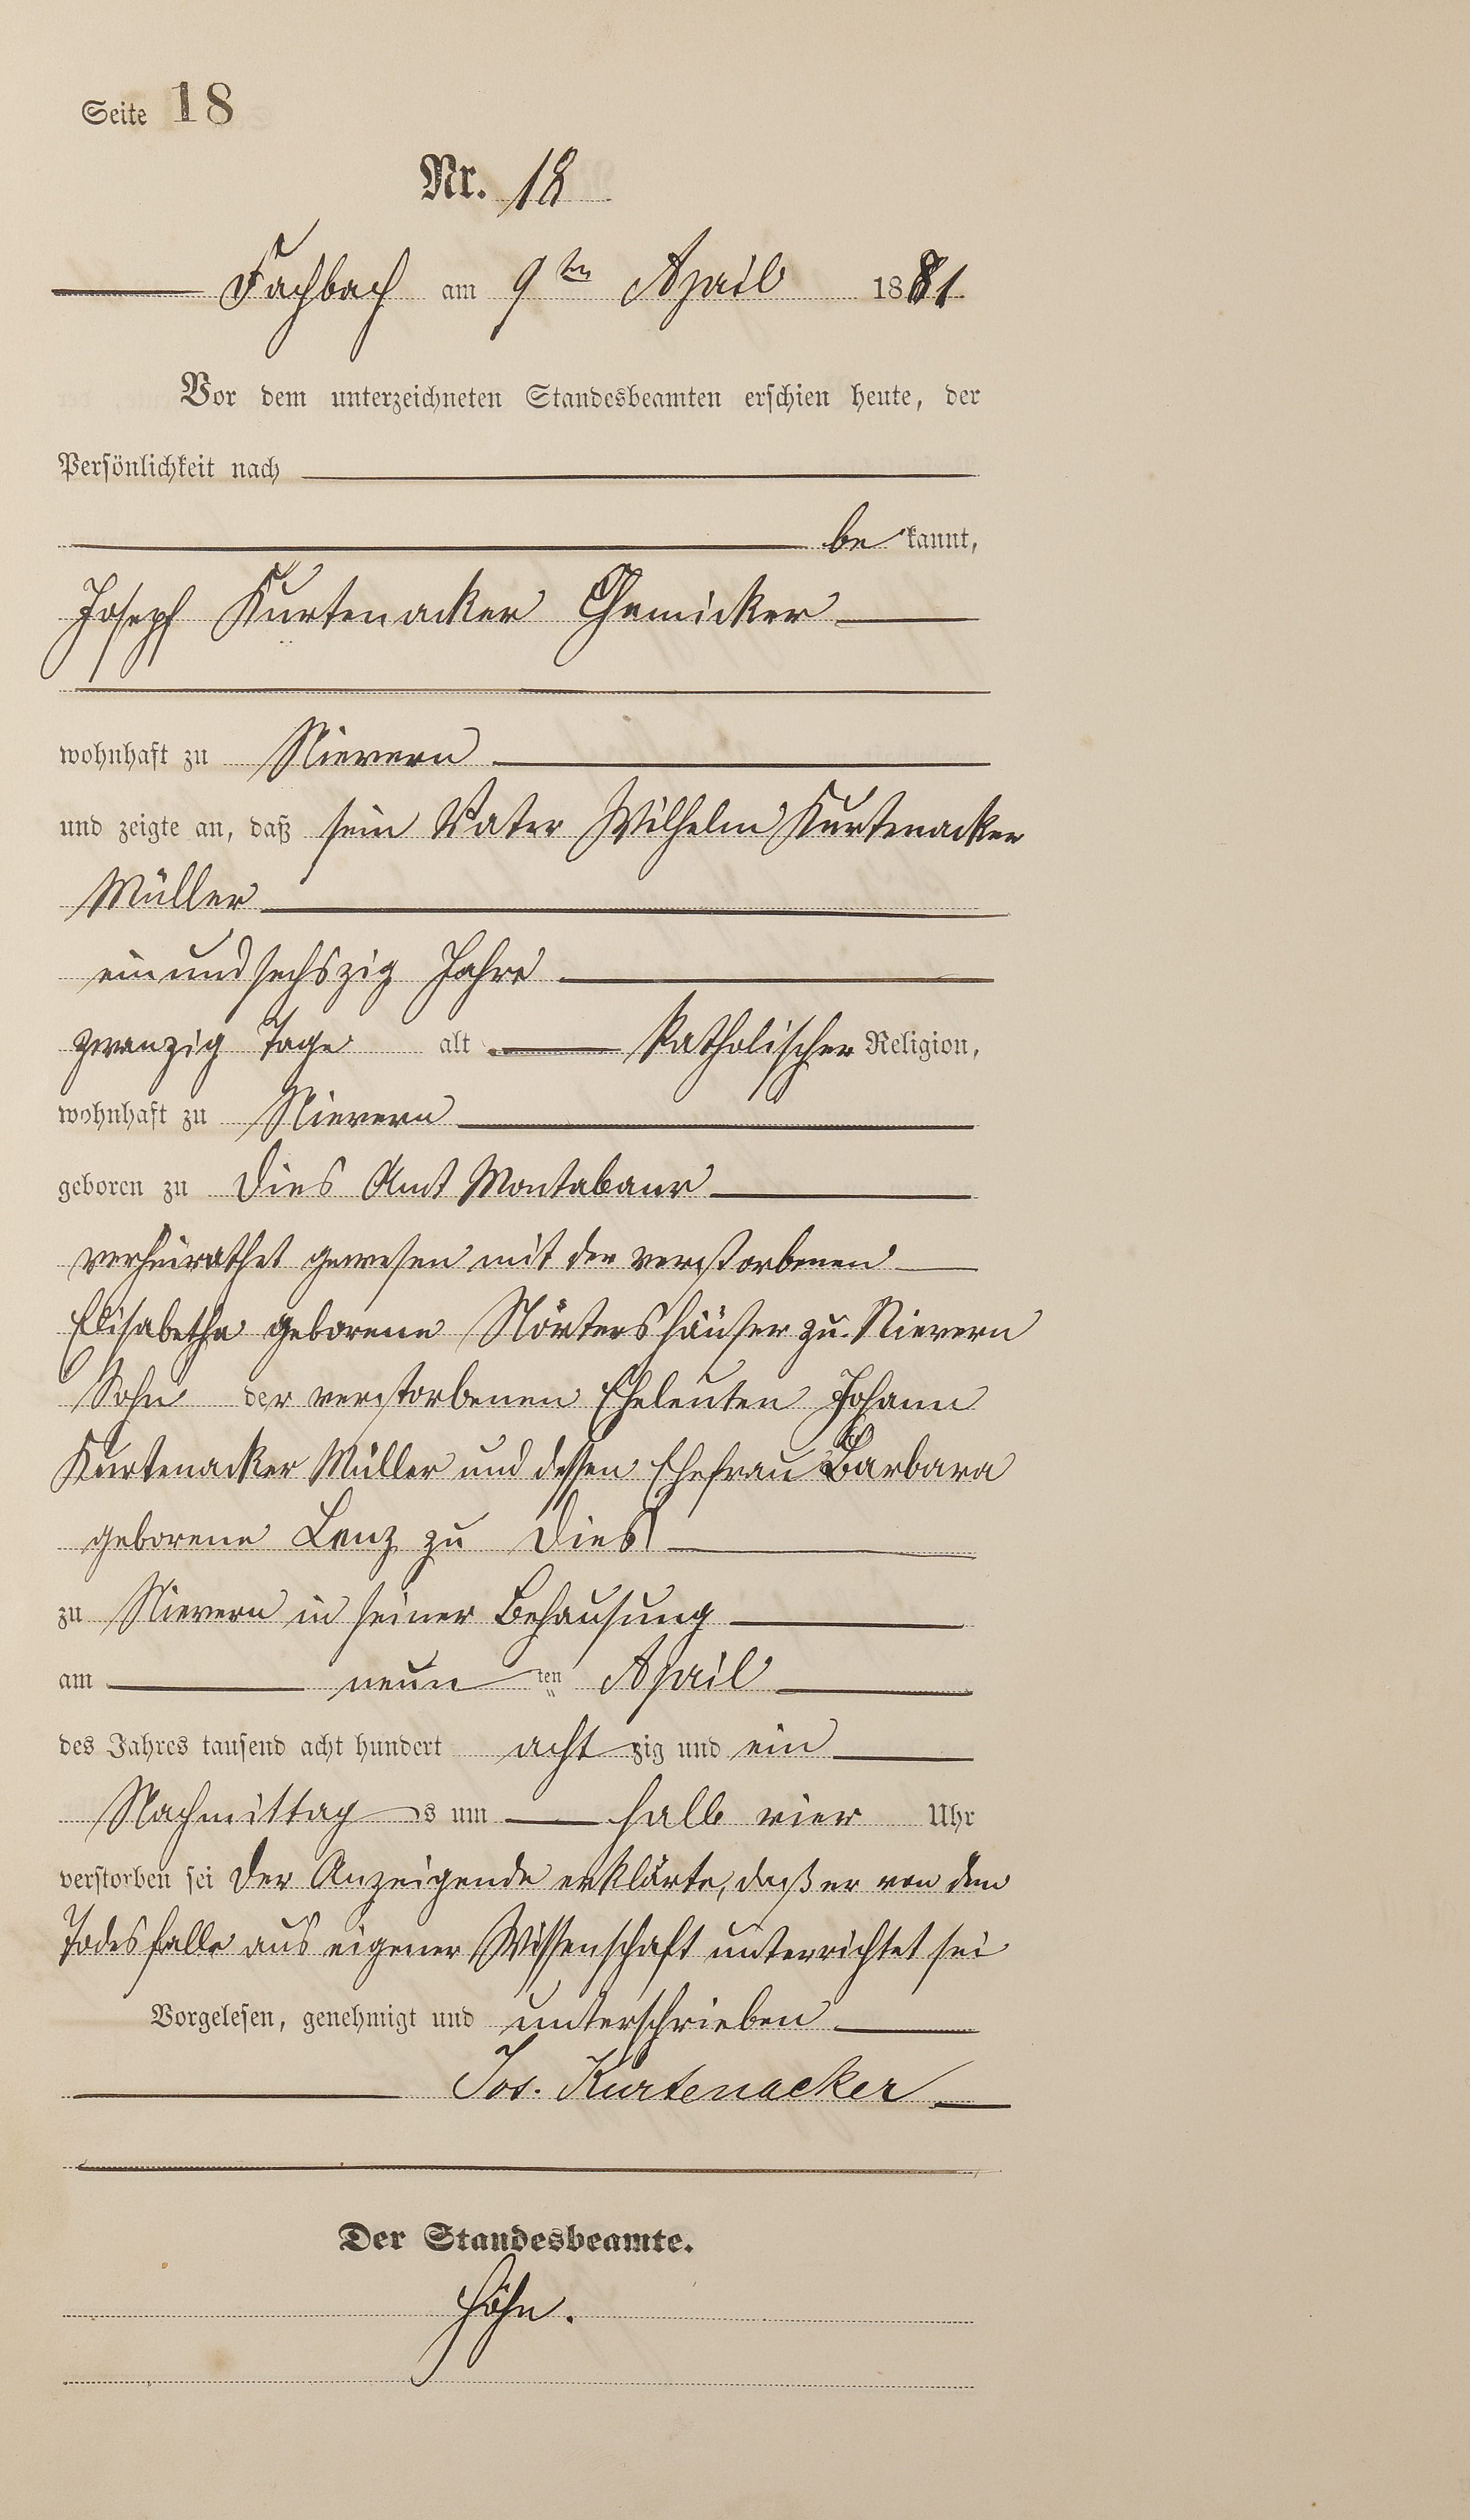 Seite 18
Nr. 18
Fachbach am 9ten April 1881.
Vor dem unterzeichneten Standesbeamten erschien heute, der
Persönlichkeit nach
bekannt,
Joseph Kurtenacker Chemicker
wohnhaft zu Nievern
und zeigte an, daß sein Vater Wilhelm Kurtenacker
Müller
ein und sechszig Jahre
zwanzig Tage alt katholischer Religion,
wohnhaft zu Nievern
geboren zu Dies Amt Montabaur
verheirathet gewesen mit der verstorbenen
Elisabetha geborene Nörtershäuser zu Nievern
Sohn der verstorbenen Eheleuten Johann
Kurtenacker Müller und dessen Ehefrau Barbara
geborene Lenz zu Dies
zu Nievern in seiner Behausung
am neunten April
des Jahres tausend acht hundert achtzig und ein
Nachmittags um halb vier Uhr
verstorben sei Der Anzeigende erklärte, daß er von dem
Todesfalle aus eigener Wissenschaft unterrichtet sei
Vorgelesen, genehmigt und unterschrieben
Jos. Kurtenacker
Der Standesbeamte.
Höhn.